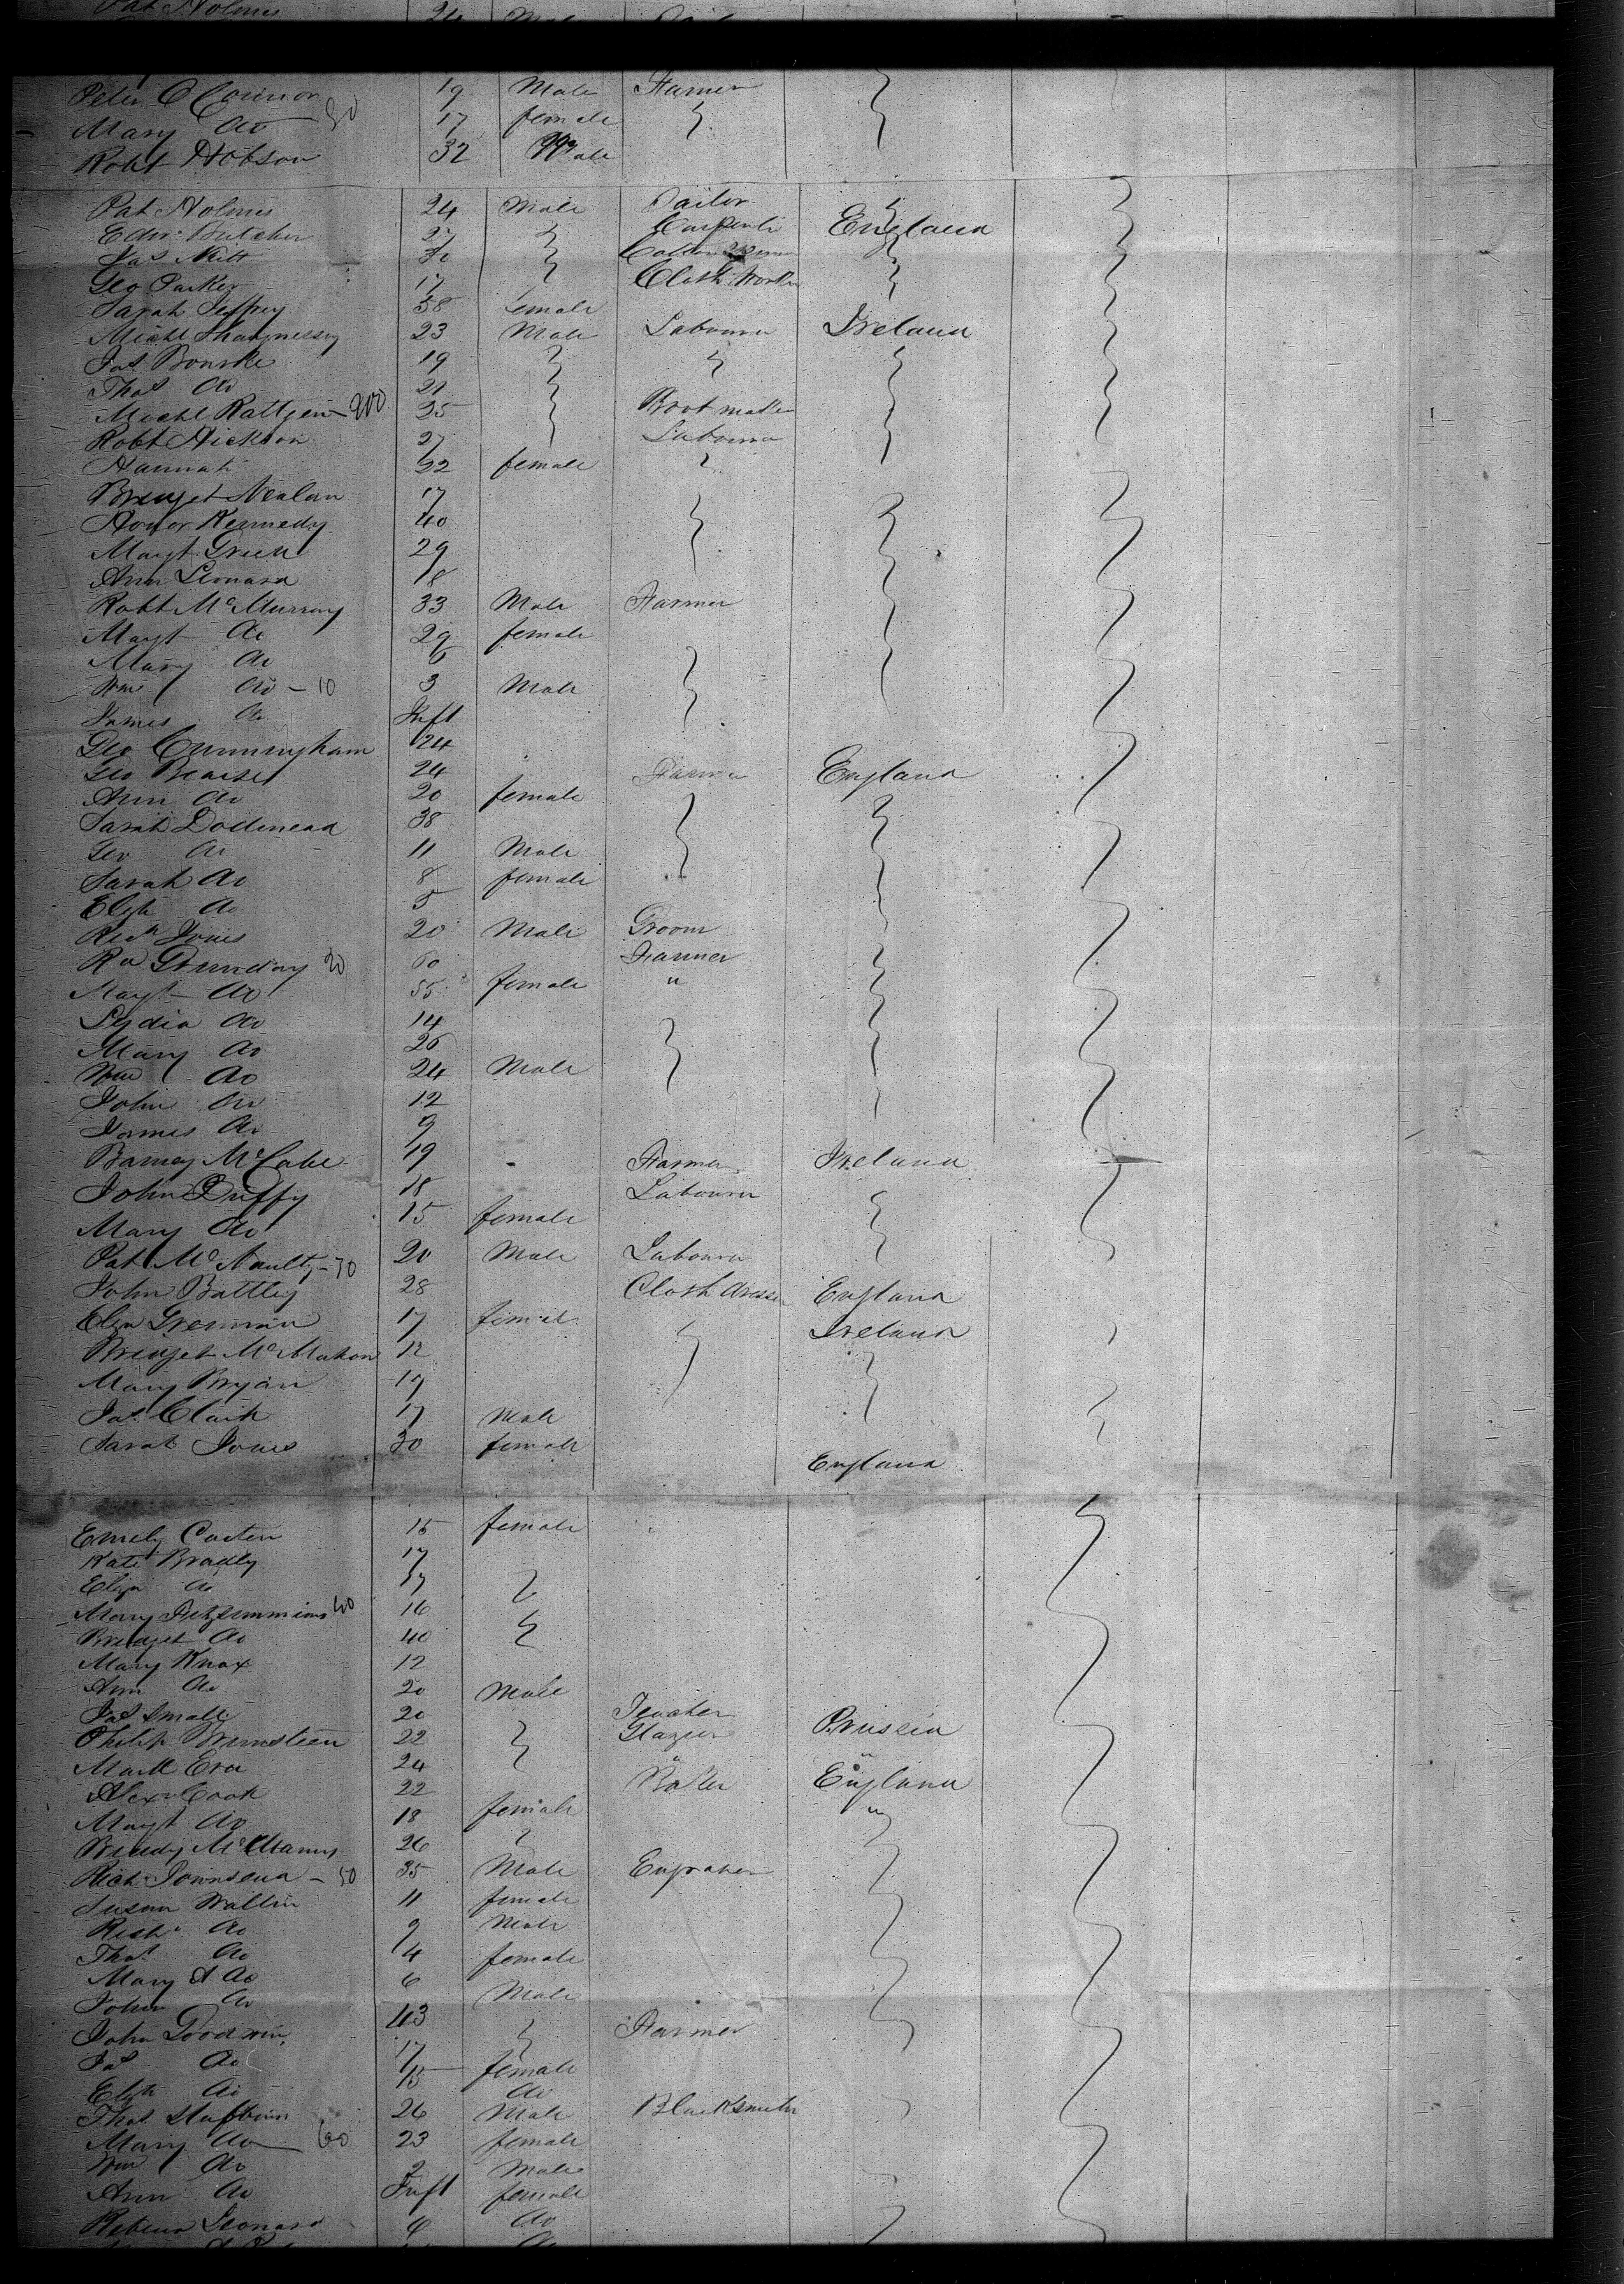 Pat Holmes 24 Male
Peter O Connor 19 Male Farmer
Mary do 17 female
Robt Hobson 32 Male
Pat Holmes 24 Male Tailor
Edw. Butcher 27 Carpentr England
Jas Mitt
Geo Parker 17 Cloth Worker
Sarah Jeffrey 58 female
Michl Shaughnessy 23 Male Labourer Ireland
Jas Bourke 19
Thos do 21
Michl Rattgen 200 25 Boot maker
Robt Hickson 27 Labourer
Hannah 22 female
Bridget Nealan 17
Honor Kennedy 40
Margt Green 29
Ann Leonard 18
Robt McMurray 33 Male Farmer
Margt do 29 female
Mary do 6
Wm do - 10 3 Male
James do Inft
Geo Cunningham 24
Geo 24 Farmer England
Ann do 20 female
Sarah Dodemead 38
Geo do 11 Male
Sarah do 8 female
Elizh do 5
Richd Jones 20 Male Groom
Rd Grunday 20 60 Farmer
Margt do 55 female "
Lydia do 14
Mary do 26
Wm do 24 Male
John do 12
James do 9
Barney McCabe 19 Farmer Ireland
John Duffy 18 Labourer
Mary do 15 female
Pat McNaulty - 30 20 Male Labourer
John Battley 28 Cloth dresser England
Eliza 17 female Ireland
Bridget McMahon 12
Mary Bryan 17
Jas Clark 17 Male
Sarah Jones 30 female England
Emely Carter 15 female
Kate Bradly 17
Eliza do 17
Mary Fitzsimmions 40 16
Bridget do 40
Mary Knox 12
Ann do 20
Jas Small 20 Male Teacher
Philip 22 Glazier Prussia
Mark 24 " "
Alexr Cook 22 England
Margt do 18 female "
Biddy 26
Richd Townsend - 50 35 Male Engraver
Susan Wallin 11 female
Richd do 9 Male
Thos do 4
Mary A do 6 female
John do Male
John Goodwin 43 Farmer
Jas do 17
Elizh do 15 female
Thos 26 Male Blacksmith
Mary do 60 23 female
Wm do 2 Male
Ann do Inft female
Rebecca Leonard do